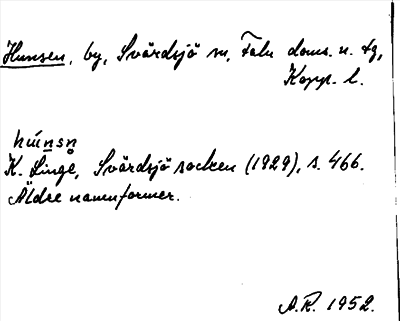 Hunsen, by, Svärdsjö sn, Falu doms. n. tg,
Kopp. l.
húnsn̥
K. Linge, Svärdsjö socken (1929), s. 466.
Äldre namnformer.
A.R. 1952.